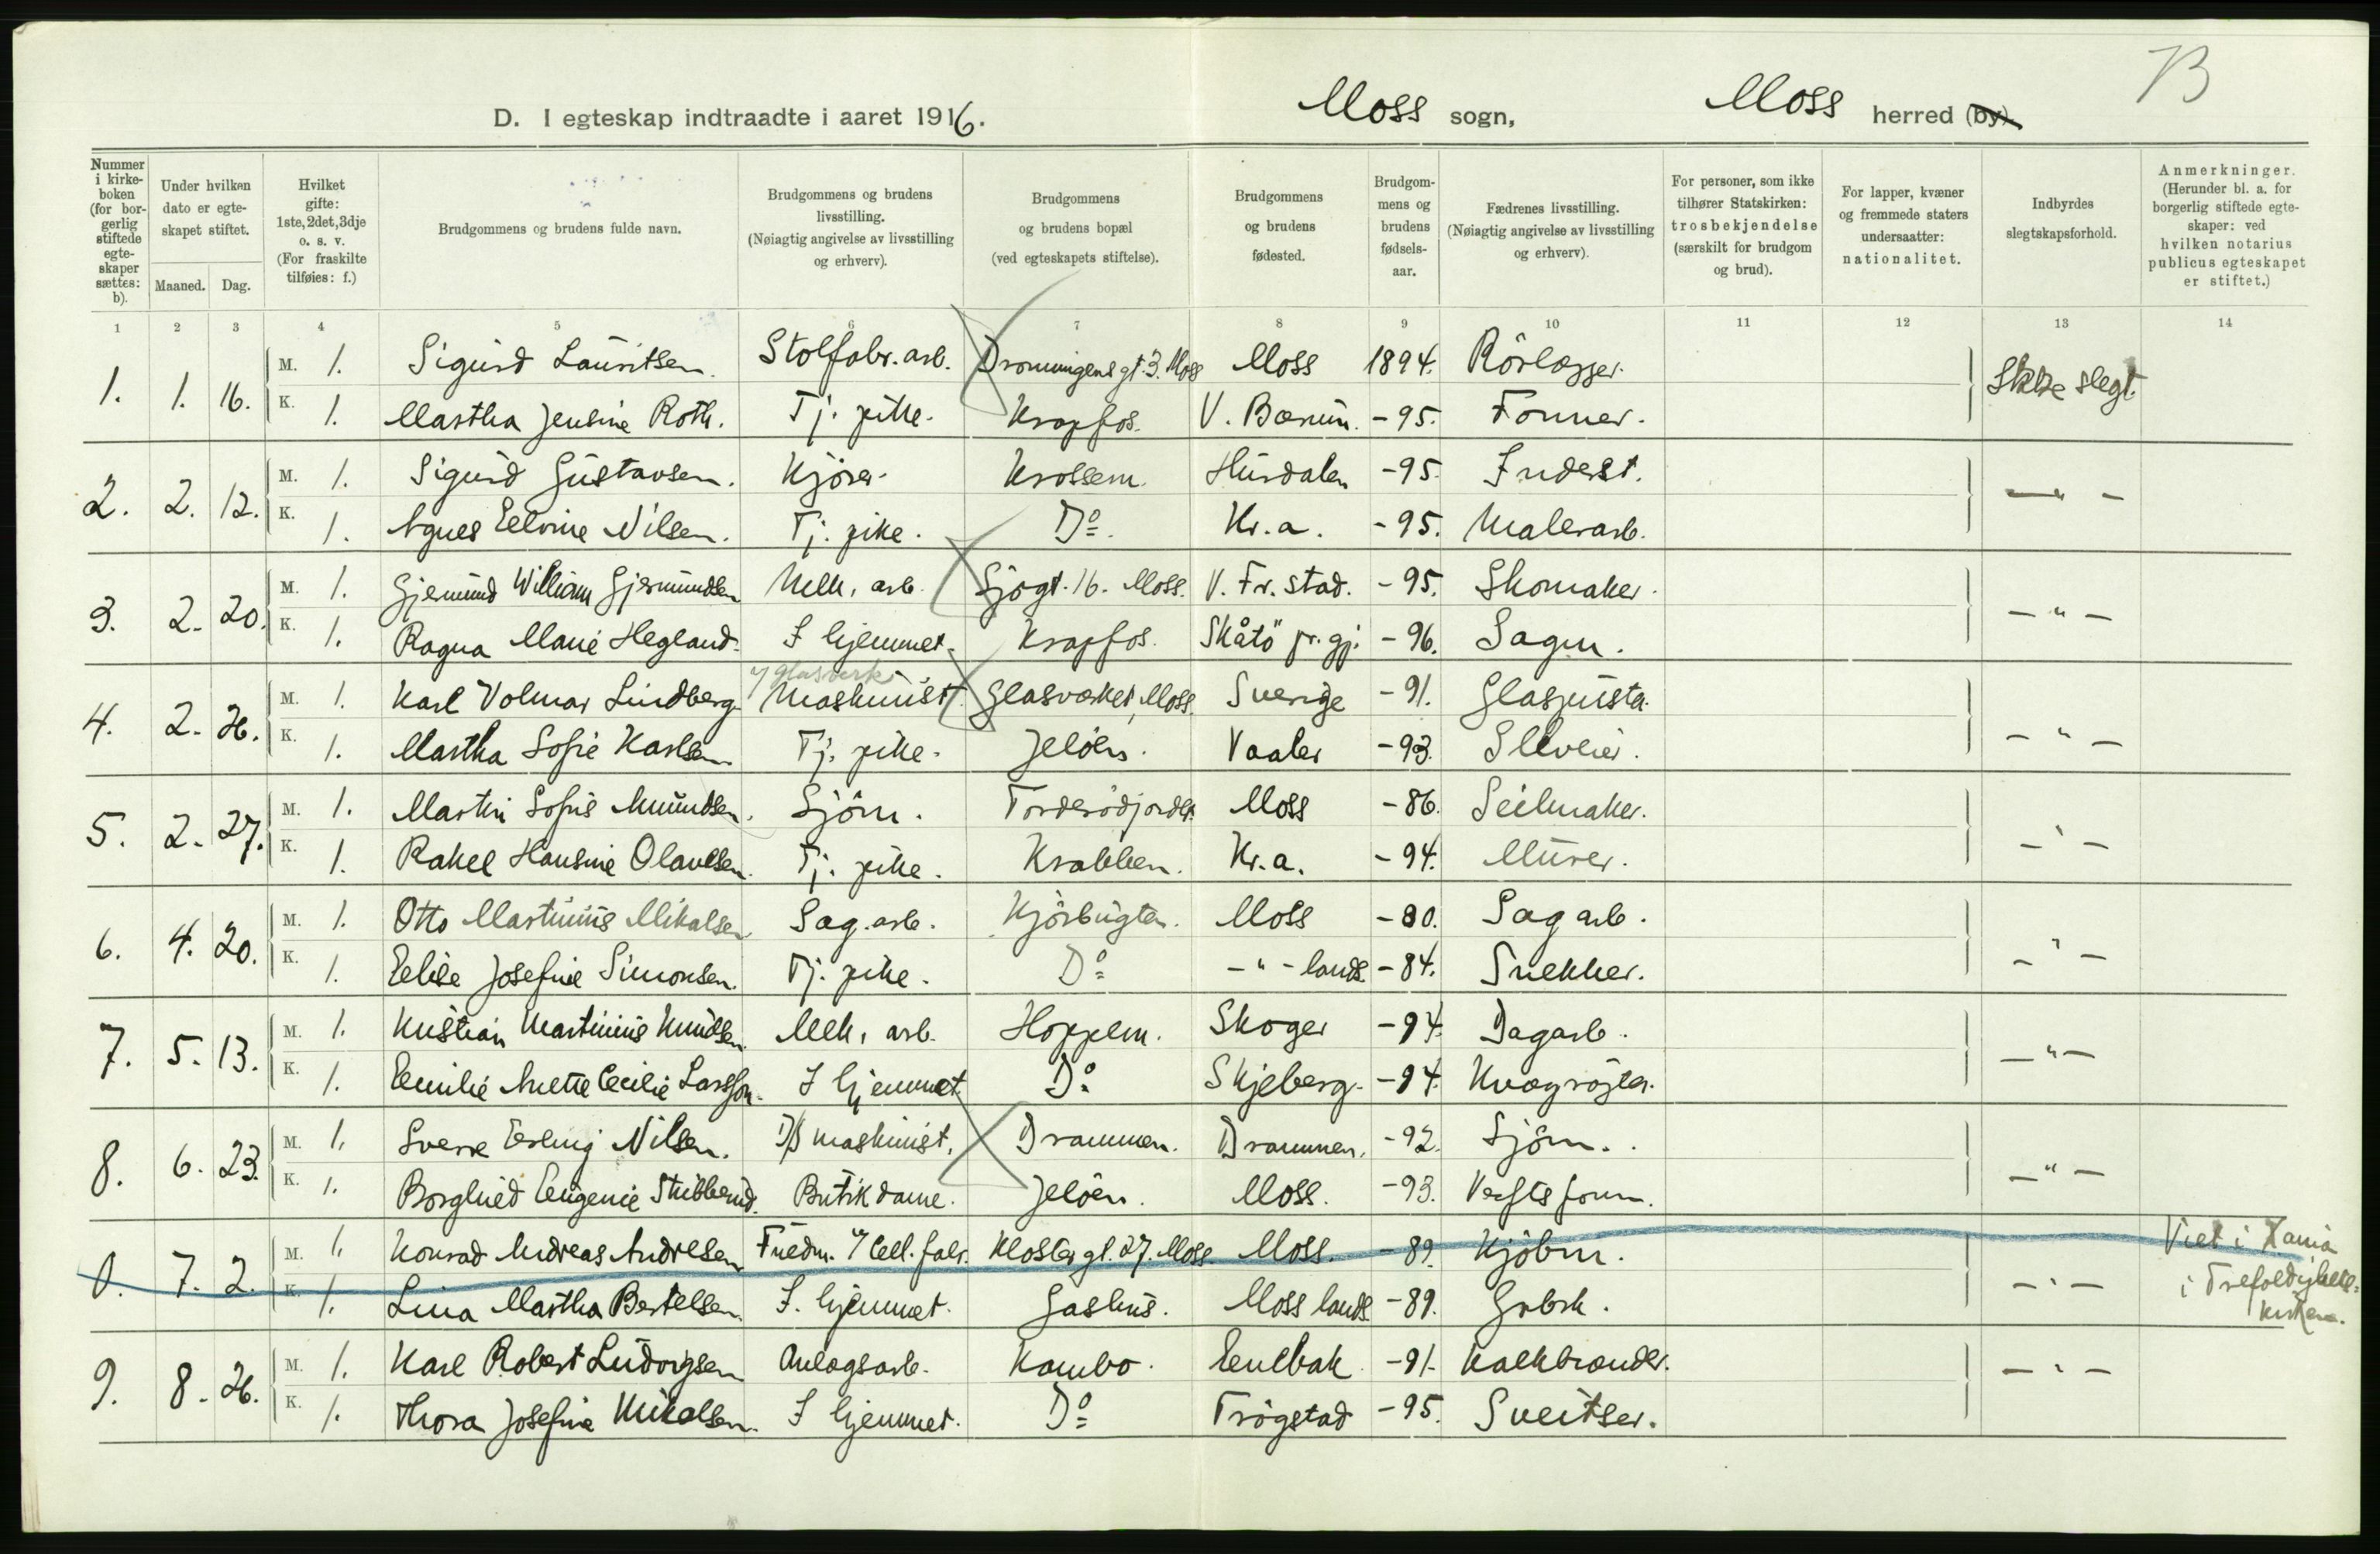 B
D. I egteskap indtraadte i aaret 1916. Moss sogn, Moss herred (by)
Nummer i kirkeboken (for borgerlig stiftede egteskaper sættes: b).
Under hvilken dato er egteskapet stiftet.
Maaned. Dag.
Hvilket gifte: 1ste, 2det, 3dje o. s. v. (For fraskilte tilføies: f.)
Brudgommens og brudens fulde navn.
Brudgommens og brudens livsstilling. (Nøiagtig angivelse av livsstilling og erhverv).
Brudgommens og brudens bopæl (ved egteskapets stiftelse).
Brudgommens og brudens fødested.
Brudgommens og brudens fødselsaar.
Fædrenes livsstilling. (Nøiagtig angivelse av livsstilling og erhverv).
For personer, som ikke tilhører Statskirken: trosbekjendelse (særskilt for brudgom og brud).
For lapper, kvæner og fremmede staters undersaatter: nationalitet.
Indbyrdes slegtskapsforhold.
Anmerkninger. (Herunder bl. a. for borgerlig stiftede egteskaper: ved hvilken notarius publicus egteskapet er stiftet.)
1 2 3 4 5 6 7 8 9 10 11 12 13 14
1. 1. 16. M. 1. Sigurd Lauritsen. Stolfabr. arb. Dronningens gt 3. Moss Moss 1894. Rörlægger. Ikke slegt.
K. 1. Martha Jensine Roth. Tj. pike. Krapfos. V. Bærum. -95. Former.
2. 2. 12. M. 1. Sigurd Gustavsen. Kjörer. Krossern. Hurdalen -95. Inderst. - " -
K. 1. Agnes Elvine Nilsen. Tj. pike. Do. Kr.a. -95. Malerarb.
3. 2. 20. M. 1. Gjermund William Gjermundsen Mek. arb. Sjögt. 16. Moss. V. Fr.stad. -95. Skomaker. - " -
K. 1. Ragna Marie Hegland. I hjemmet. Krapfos. Skåtö pr.gj. -96. Sagm.
v/ Glasverk
4. 2. 26. M. 1. Karl Volmar Lindberg Maskinist. Glasverket, Moss. Sverige -91. Glaspuster. - " -
K. 1. Martha Sofie Karlsen Tj. pike. Jelöen. Vaaler -93. Selveier.
5. 2. 27. M. 1. Martin Sofus Amundsen. Sjöm. Tordersödjordet Moss -86. Seilmaker. - " -
K. 1. Rakel Hansine Olavesen. Tj. pike. Krabben. Kr.a. -94. Murer.
6. 4. 20. M. 1. Otto Martinius Mikalsen. Sag. arb. Kjörbugten. Moss -80. Sag arb. - " -
K. 1. Elise Josefine Simonsen. Tj. pike. Do - " - lands. -84. Snekker.
7. 5. 13. M. 1. Kristian Martinius Knudsen. Mek. arb. Hoppern. Skoger -94. Dagarb. - " -
K. 1. Emilie Anette Cecilie Larsson. I hjemmet Do Skjeberg. -94. Kvægrögter.
8. 6. 23. M. 1. Sverre Erling Nilsen. D/S maskinist. Drammen. Drammen. -92. Sjöm. - " -
K. 1. Borghild Eugenie Stibberud. Butikdame. Jelöen. Moss. -93. Verftsform.
0. 7. 2. M. 1. Konrad Andreas Andresen Fuldm. v/ Cell. fabr. Kloster gt. 27. Moss. Moss. -89. Kjöbm. - " - Viet i Kania
K. 1. Lina Martha Bertelsen. I. hjemmet. Gashus. Moss lands. -89. Grbsk. i Trefoldighets-
kirken.
9. 8. 26. M. 1. Karl Robert Ludvigsen Anlægsarb. Kambo. Enebak -91. Kalkbrænder. - " -
K. 1. Thora Josefine Mikalsen. I hjemmet. Do Trögstad -95. Sveitser.